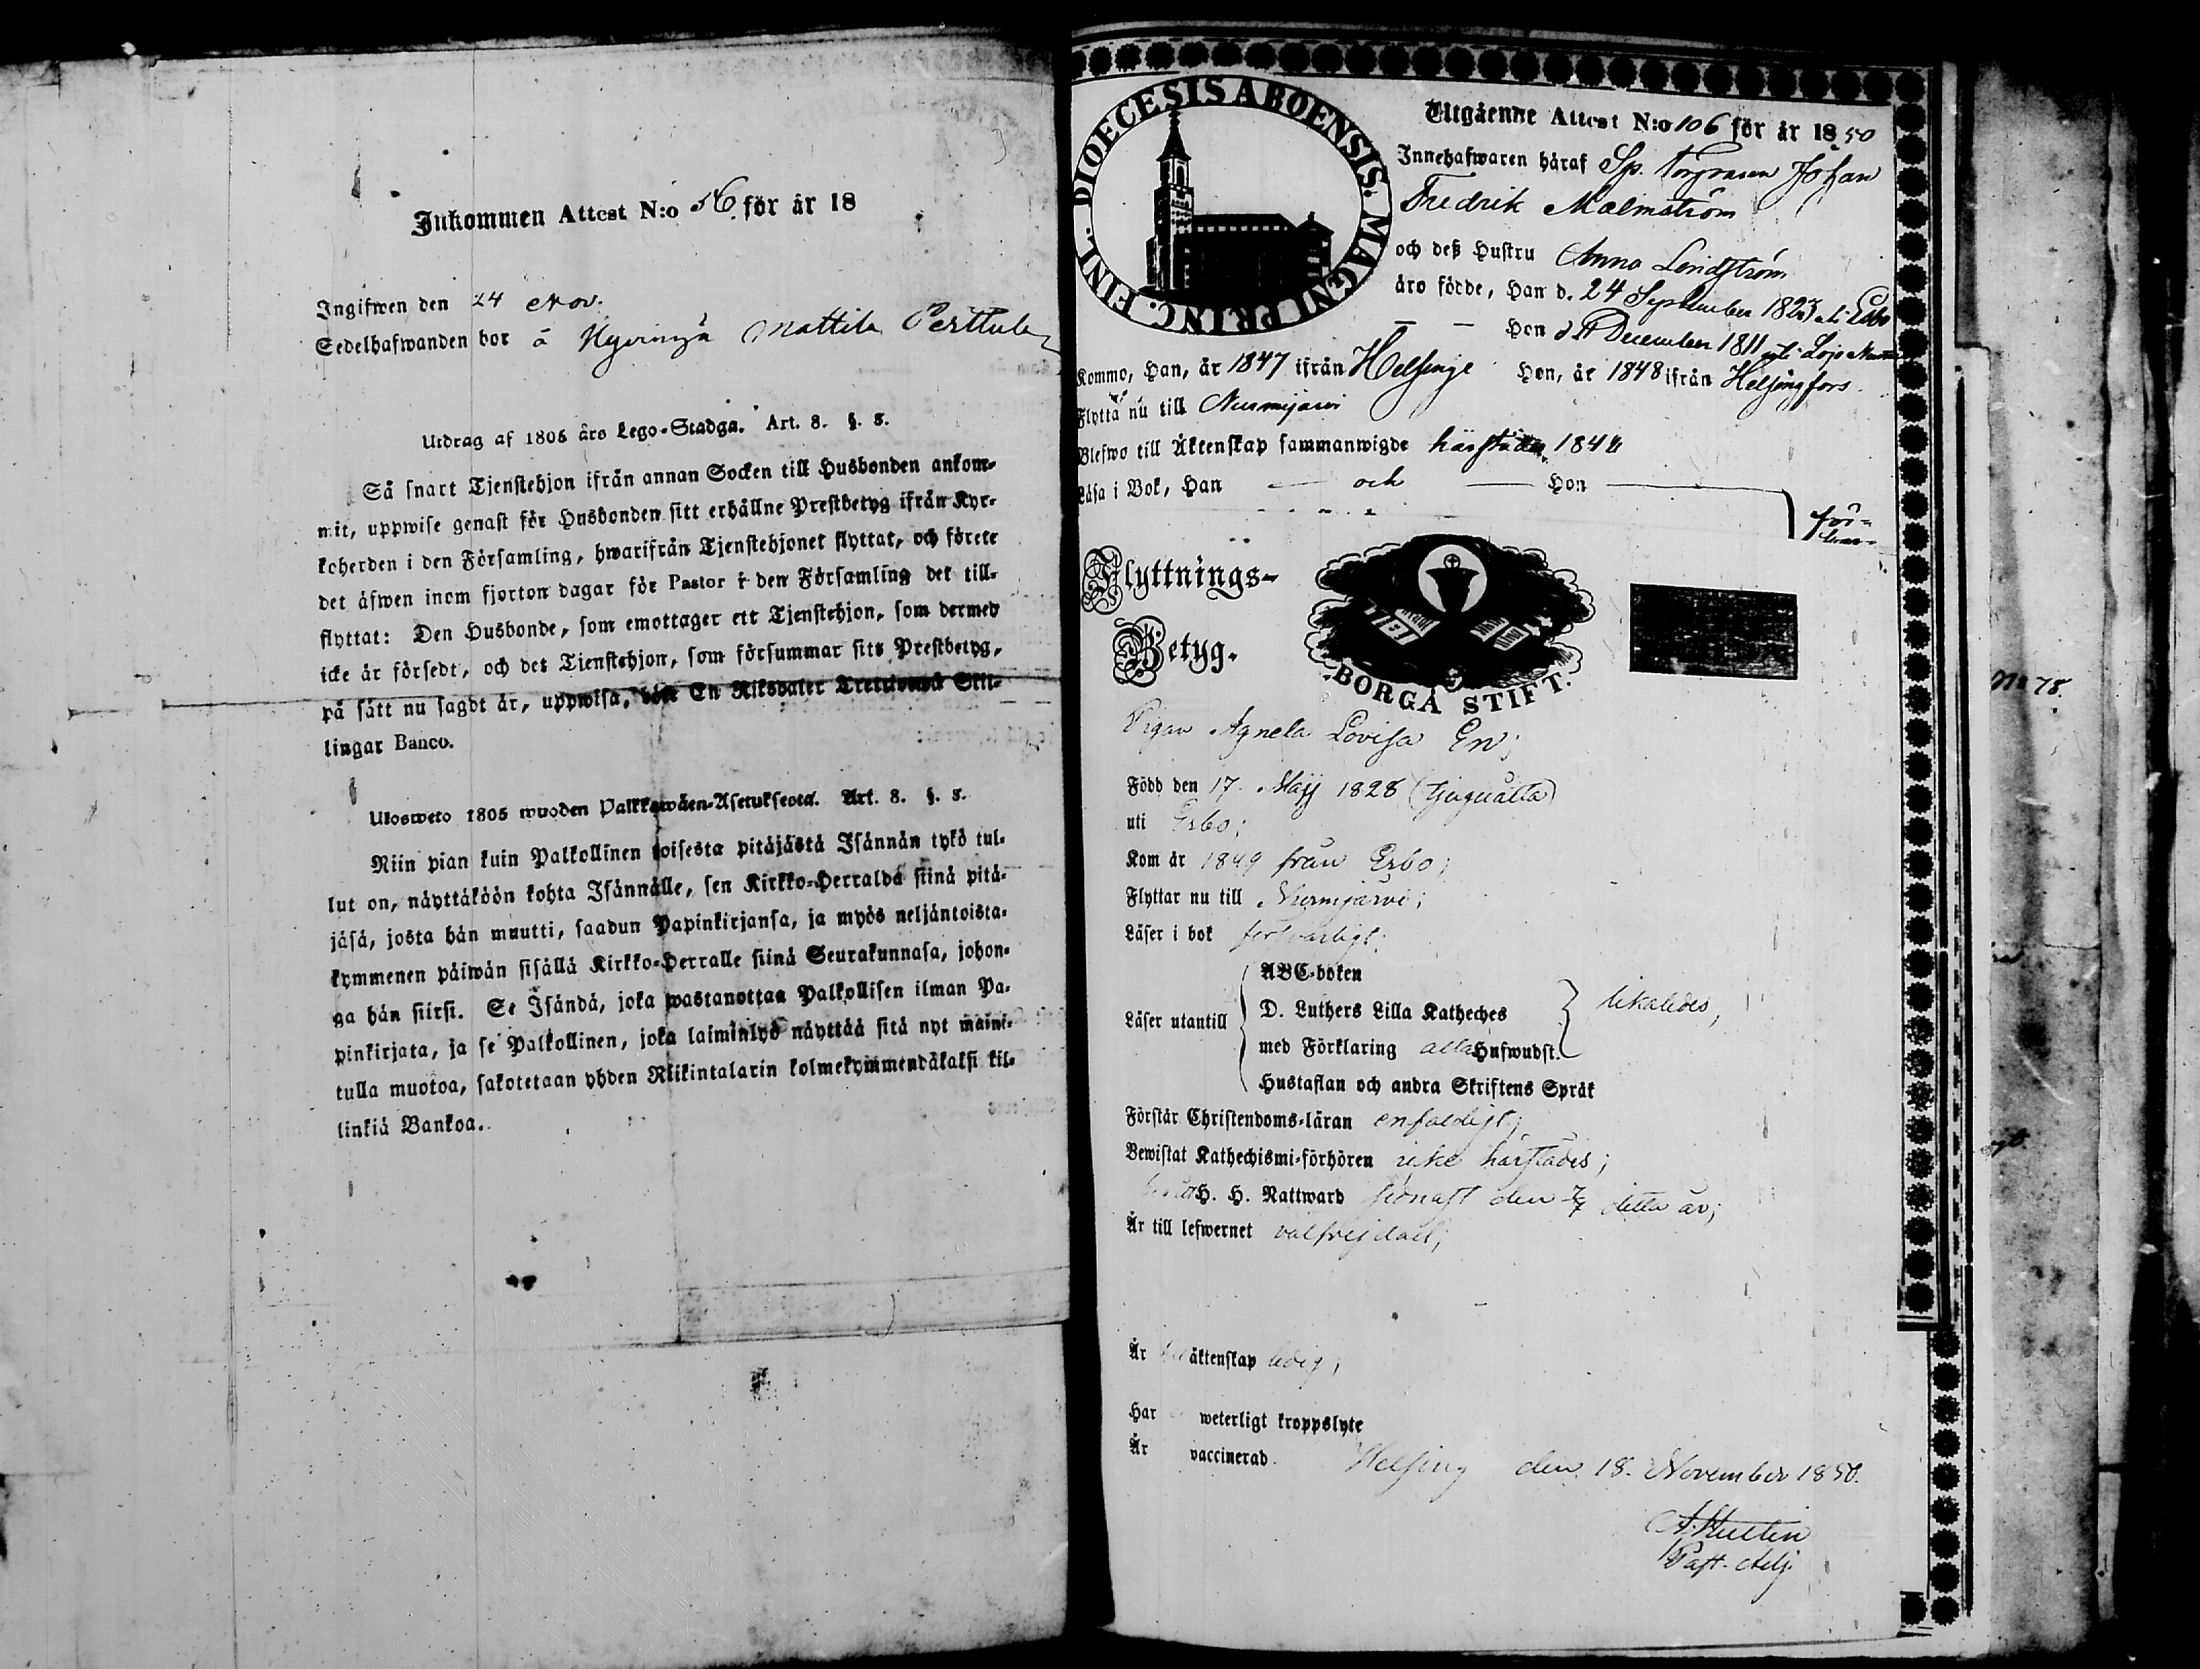 Inkommen Attest N:o 56. för år 18
Ingifwen den 24 Nov.
Sedelhafwanden bor å Hyvinge Mattila Perttula
Utdrag af 1805 års Lego-Stadga. Art. 8. §. 8.
Så snart Tjenstehjon ifrån annan Socken till Husbonden ankom-
mit, uppwise genast för Husbonden sitt erhållne Prestbetyg ifrån Kyr-
koherden i den Församling, hwarifrån Tjenstehjonet flyttat, och förete
det äfwen inom fjorton dagar för Pastor i den Församling det till-
flyttat: Den Husbonde, som emottager ett Tjenstehjon, som dermed
icke är försedt, och det Tjenstehjon, som försummar sitt Prestbetyg,
på sätt nu sagdt är, uppwisa, böte En Riksdaler Trettiotwå Skil-
lingar Banco.
Ulosweto 1805 wuoden Palkkawäen-Asetuksesta. Art. 8. §. 8.
Niin pian kuin Palkollinen toisesta pitäjästä Isännän tykö tul-
lut on, näyttäköön kohta Isännälle, sen Kirkko-Herralda siinä pitä-
jäsä, josta hän muutti, saadun Papinkirjansa, ja myös neljäntoista-
kymmenen päiwän sisällä Kirkko-Herralle siinä Seurakunnasa, johon-
ga hän siirsi. Se Isändä, joka wastanottaa Palkollisen ilman Pa-
pinkirjata, ja se Palkollinen, joka laiminlyö näyttää sitä nyt maini-
tulla muotoa, sakotetaan yhden Riikintalarin kolmekymmendäkaksi kil-
linkiä Bankoa.
DIOECESIS ABOENSIS. MAGNI PRINC. FINL.
Utgående Attest N:o 106 för år 1850
Innehafwaren häraf Sp. Torparen Johan
Fredrik Malmström
och deß Hustru Anna Lindström
äro födde, Han d. 24 September 1823 uti Esbo
— — Hon d. December 1811 uti Lojo
Kommo, Han, år 1847 ifrån Helsinge Hon, år 1848 ifrån Helsingfors.
Flytta nu till Nurmijärvi
Blefwo till Äktenskap sammanwigde härstädes 184
Läsa i Bok, Han — och — Hon — för-
Flyttnings-
Betyg.
BORGÅ STIFT.
Pigan Agneta Lovisa En;
Född den 17. Maij 1828 (tjuguåtta)
uti Esbo;
Kom år 1849 från Esbo;
Flyttar nu till Nurmijärvi;
Läser i bok försvarligt;
Läser utantill
ABC-boken
D. Luthers Lilla Katheches
med Förklaring alla Hufwudst.
Hustaflan och andra Skriftens Språk
likaledes,
Förstår Christendoms-läran enfaldigt;
Bewistat Kathechismi-förhören icke härstädes;
H. H. Nattward sednast den 7/7 detta år;
Är till lefwernet välfrejdad;
Är till äktenskap ledig;
Har weterligt kroppslyte
Är vaccinerad.
Helsing den 18. November 1850.
A. Hultin
Past. Adj.
No 78.